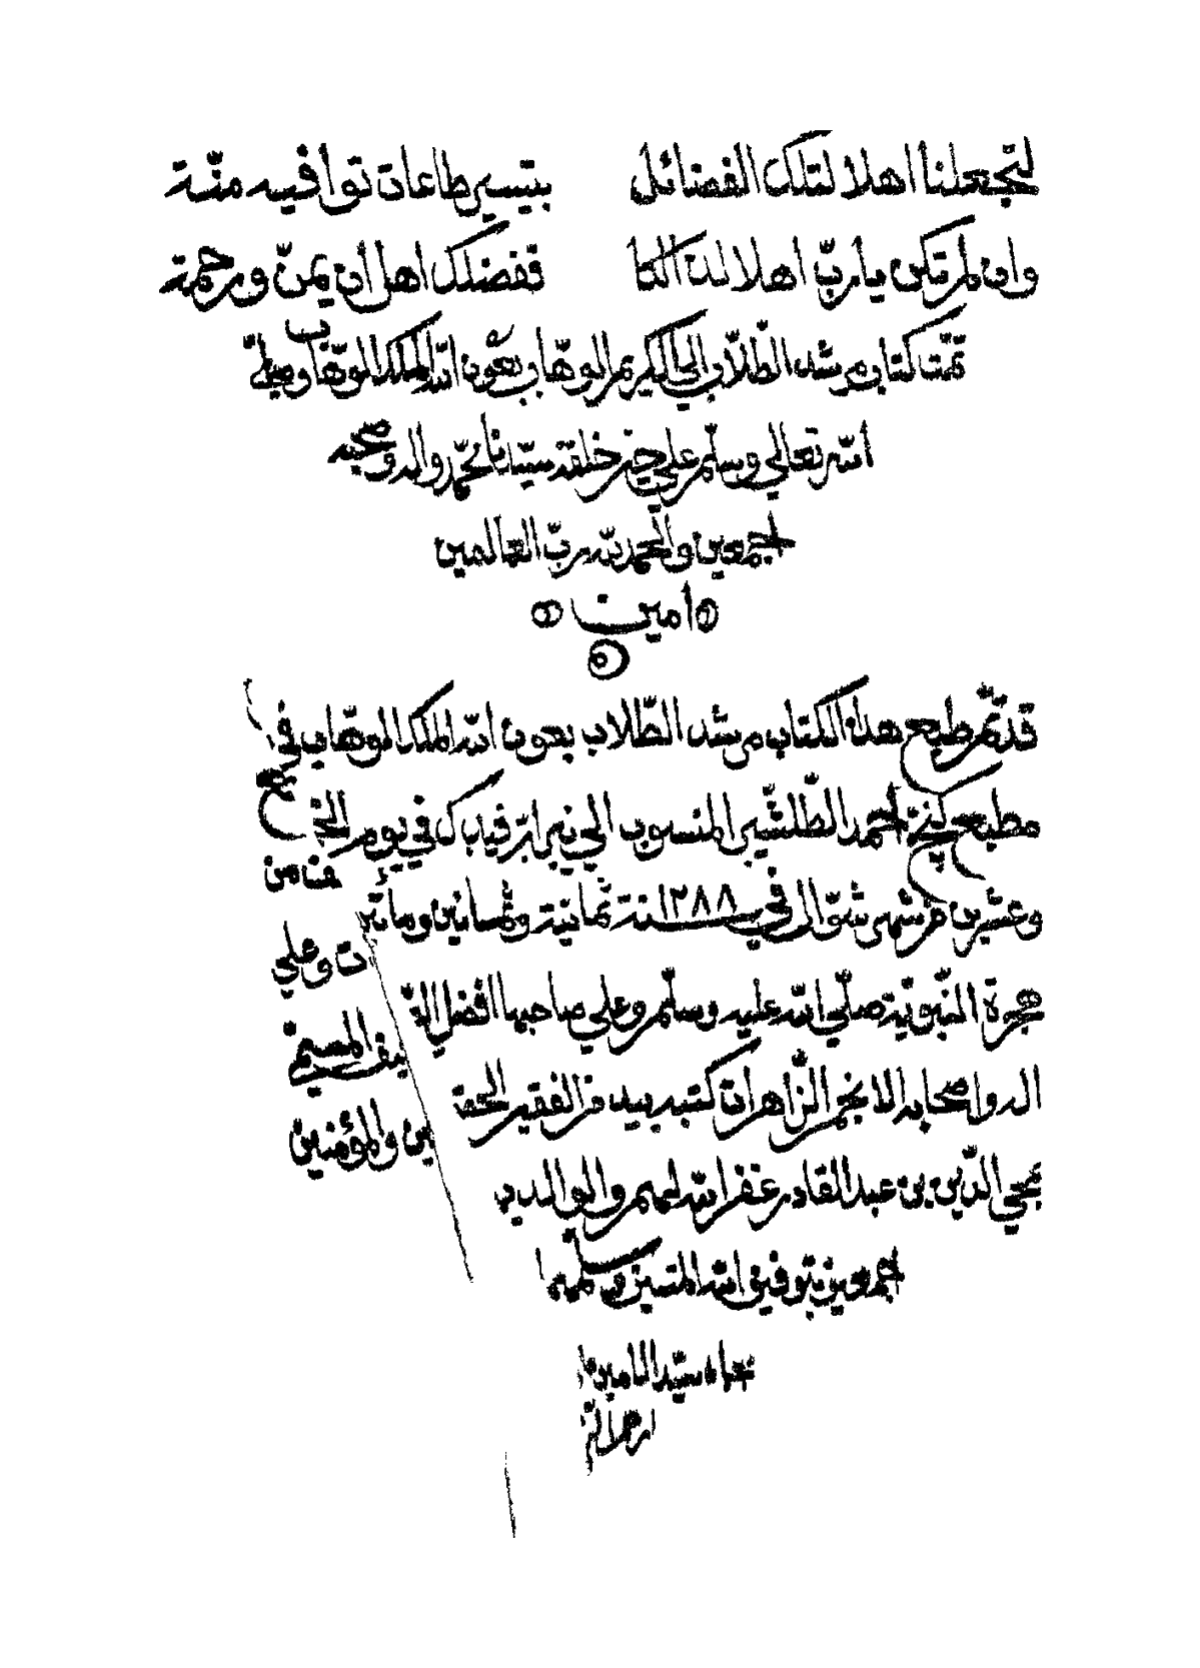 لتجعلنا اهلا لتلك الفضائل بتيسير طاعات توافيه منّة
وان لم تكن يا ربّ اهلا لذالكا ففضلك اهل أن يمنّ ورحمة
تمّت كتاب مرشد الطّلاّب الى الكريم الوهّاب بعون الله الملك الوهّاب وصلّى
الله تعالى وسلّم على خير خلقه سيّدنا محمّد واله وصحبه
اجمعين والحمد لله ربّ العالمين
امين
قد تمّ طبع هذا الكتاب مرشد الطّلاب بعون الله الملك الوهّاب في
مطبع احمد الطّلشّيرى المنسوب الى في يوم
وعشرين من شهر شوّال في سنة ١٢٨٨ ثمانية وثمانين
هنا من
هجرة النّبويّة صلّى الله عليه وسلّم وعلى صاحبها افضل
ت وعلى
اله واصحابه الانجم الزّاهرات كتبه بيده الفقير
المسمّى
محي الدّين بن عبد القادر غفر الله لهم ولوالديه
ين والمؤمنين
اجمعين بتوفيق الله المتين
سيّد